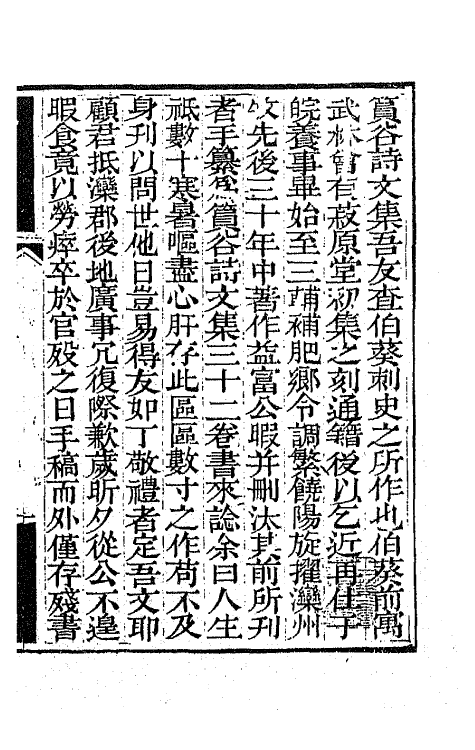 篔谷詩文集吾友查伯葵刺史之所作也伯葵前寓
武林曾有菽原堂初集之刻通籍後以乞近再仕于
皖養事畢始至三輔補肥鄉令調繁饒陽旋擢灤州
牧先後三十年中著作益富公暇并刪汰其前所刊
者手纂為篔谷詩文集三十二卷書來諗余曰人生
祇數十寒暑嘔盡心肝存此區區數寸之作苟不及
身刊以問世他日豈易得友如丁敬禮者定吾文耶
顧君抵灤郡後地廣事冗復際歉歲昕夕從公不遑
暇食竟以勞瘁卒於官歿之日手稿而外僅存殘書